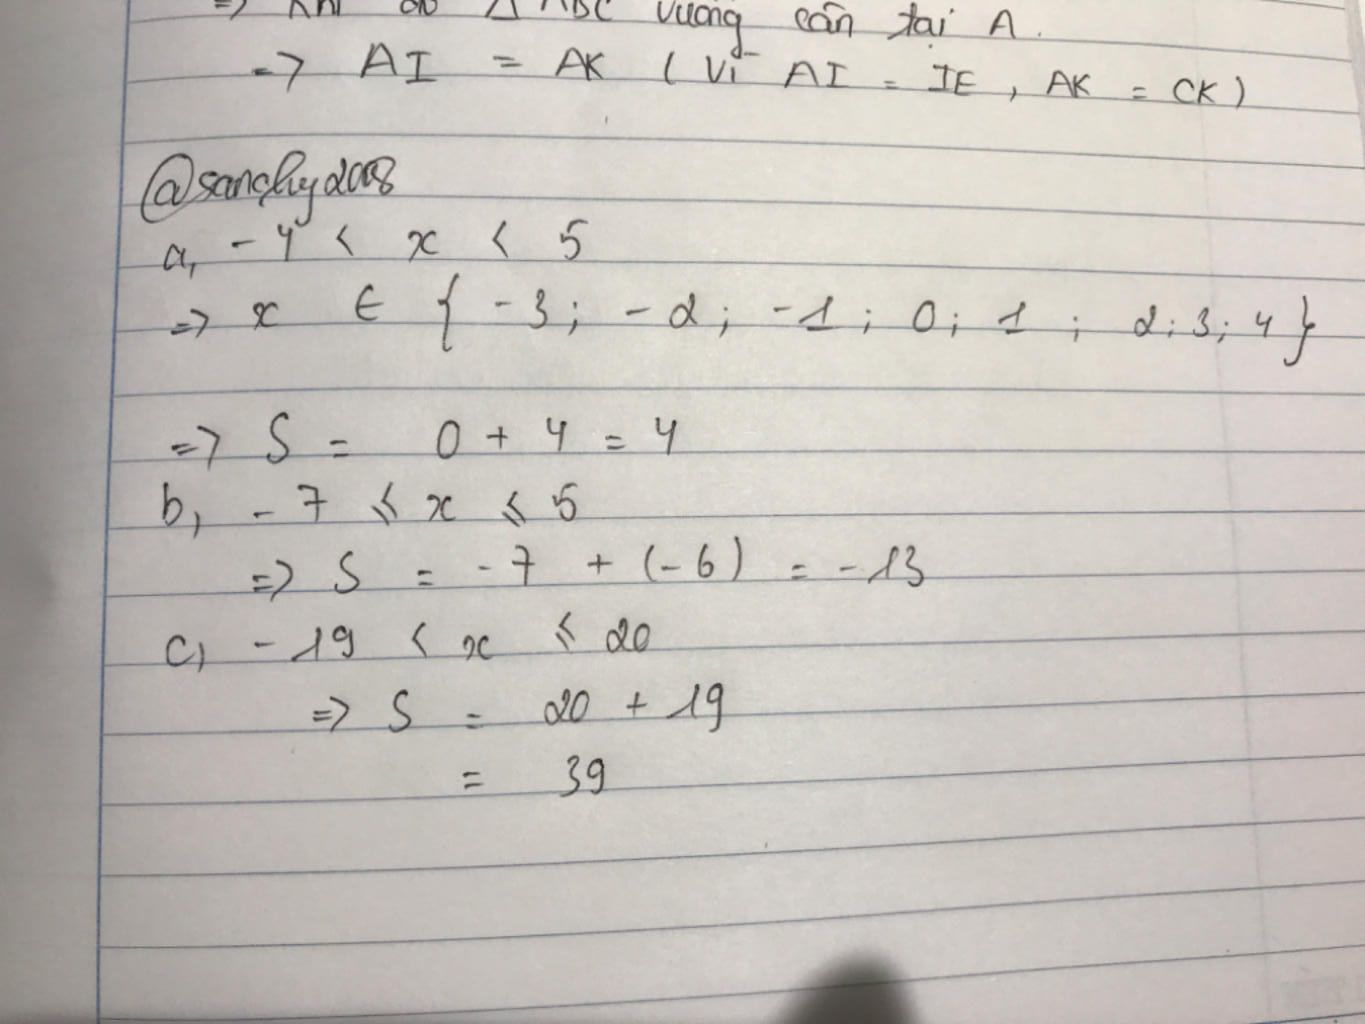 => Khi đó △ ABC vuông cân tại A.
=> AI = AK ( Vì AI = IE , AK = CK )
@sanghy2008
a, - 4 < x < 5
=> x ∈ { - 3 ; - 2 ; - 1 ; 0 ; 1 ; 2 ; 3 ; 4 }
=> S = 0 + 4 = 4
b, - 7 ⩽ x ⩽ 5
=> S = - 7 + (- 6) = - 13
c, - 19 < x ⩽ 20
=> S = 20 + 19
= 39